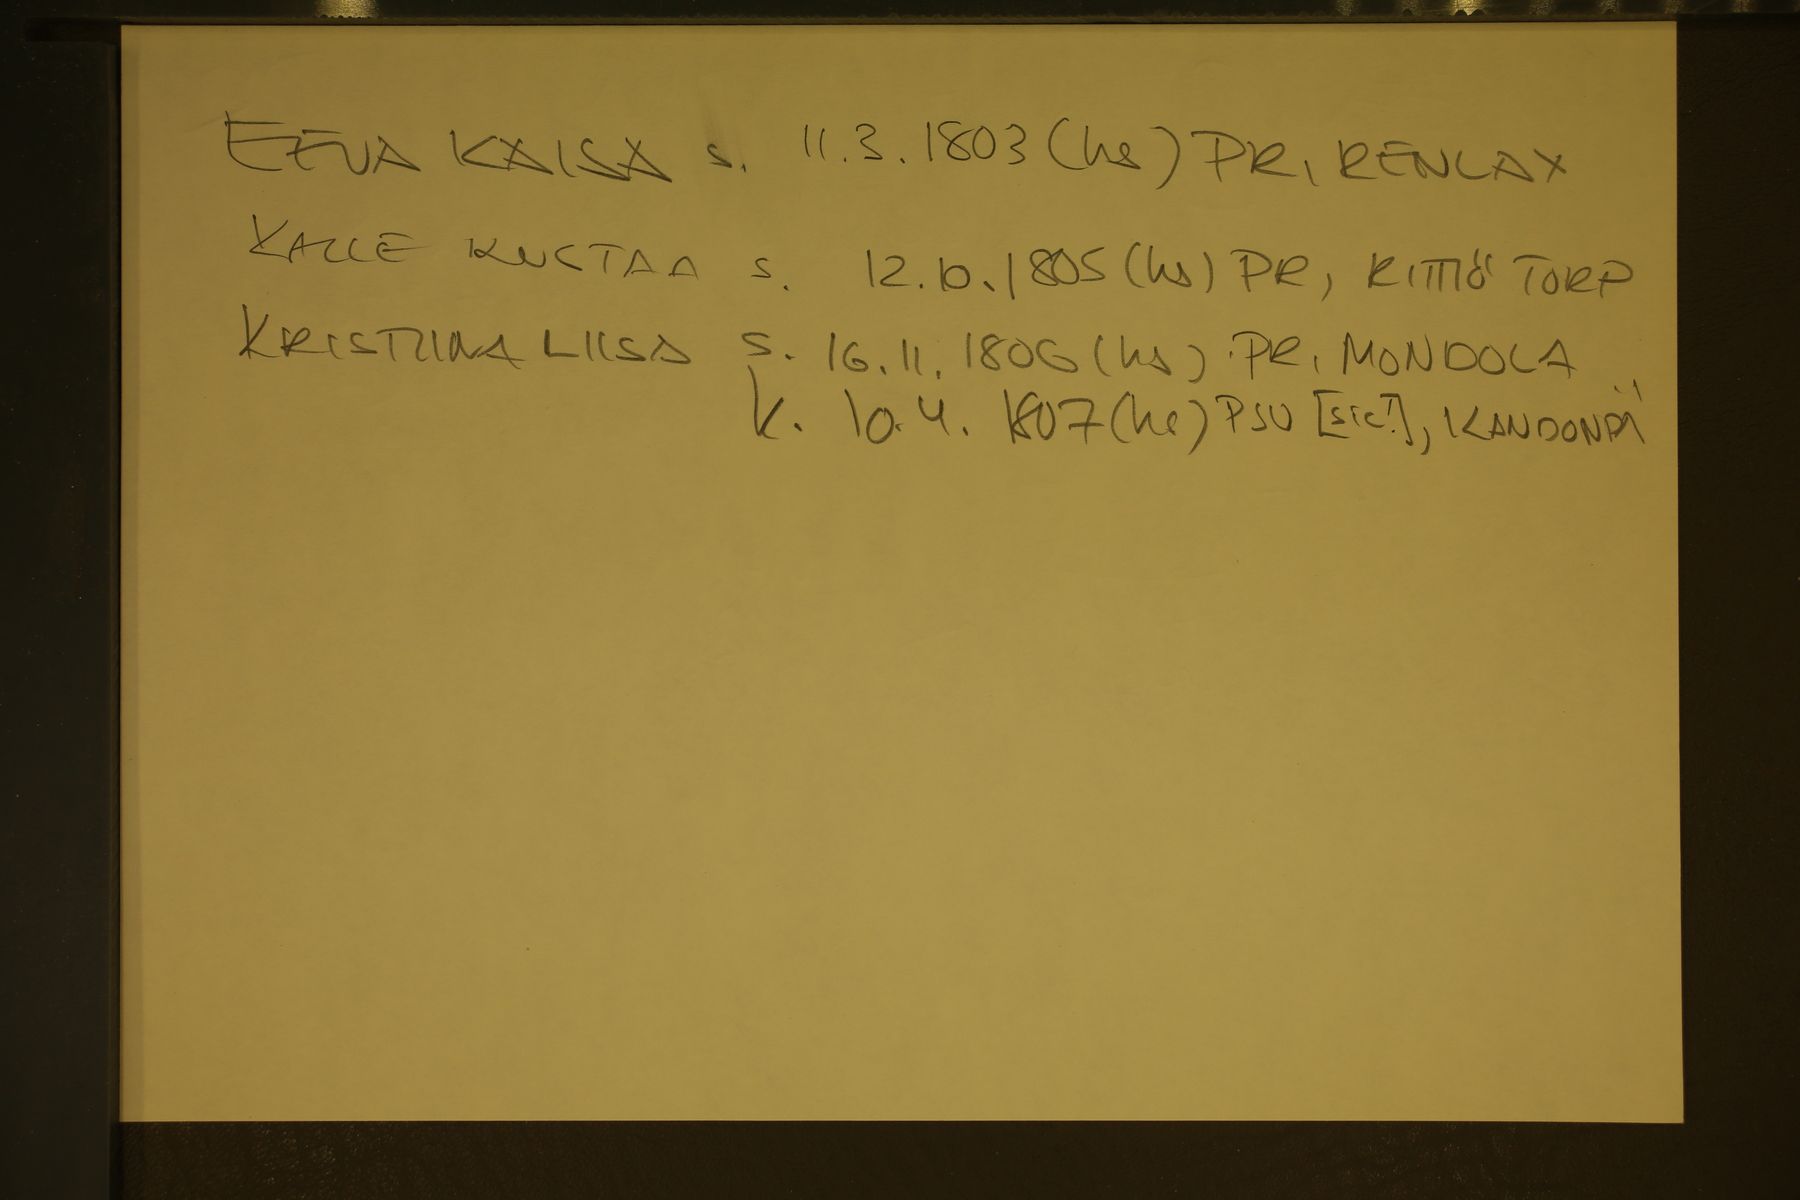 EEVA KAISA s. 11.3.1803 (hs) PR, RENLAX
KALLE KUSTAA s. 12.10.1805 (hs) PR, KITTIÖ TORP
KRISTIINA LIISA s. 16.11.1806 (hs) PR, MONDOLA
k. 10.4.1807 (hs) PSU [sic!], KANDONPÄ